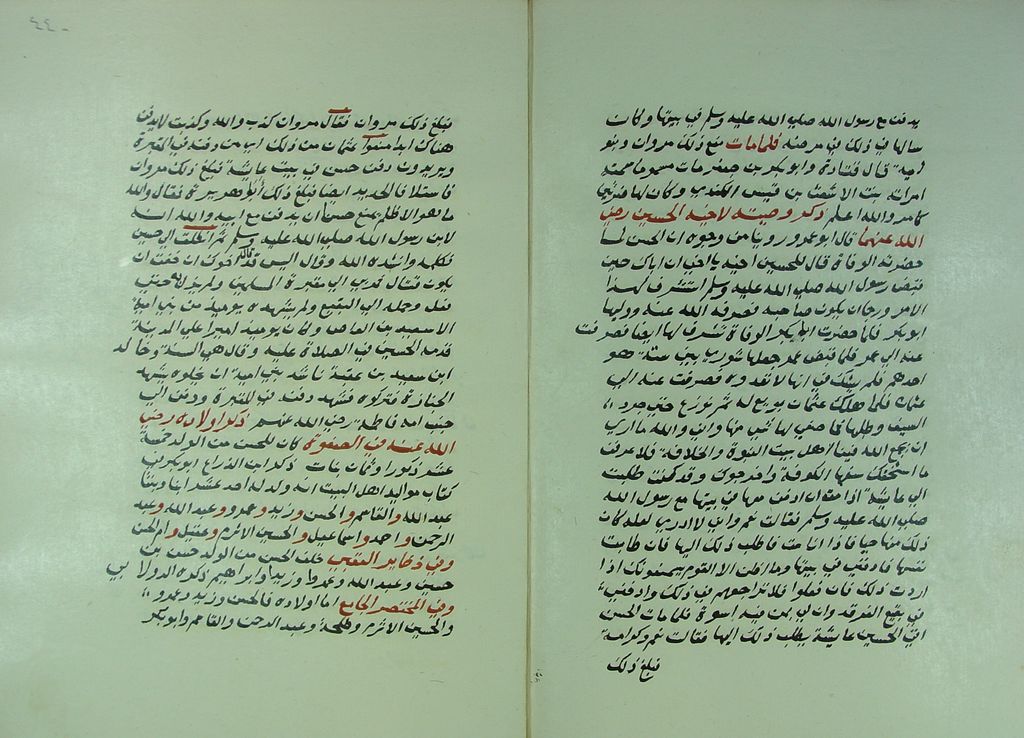 يدفن مع رسول الله صلي الله عليه وسلم في بيتها وكان
سالها في ذلك في مرضه فلما مات منع ذلك مروان وبنو
امية قال قتادة وابو بكر بن حفص مات مسموما سمته
امراته بنت الاشعث بن قيس الكندي وكان لها ضراير
والله اعلم ذكر وصيته لاخيه الحسين رضي
الله عنهما قال ابو عمرو روينا من وجوه ان الحسن لما
حضرته الوفاة قال للحسين اخيه يا اخي ان اباك حين
قبض رسول الله صلي الله عليه وسلم استشرف لهذا
الامر ورجا ان يكون صاحبه فصرفه الله عنه ووليها
ابو بكر فلما حضرت ابا بكر الوفاة تشرف لها ايضا فصرفت
عنه الي عمر فلما قبض عمر جعلها شوري بين ستة هو
احدهم فلم يشك في انها لا تعدوه فصرفت عنه الي
عثمان فلما هلك عثمان بويع له ثم نوزع حتي جرد
السيف وطلبها فما صفي له شي منها واني والله ما اري
ان يجمع الله فينا اهل بيت النبوة والخلافة فلا اعرفن
ما استخفك سفها الكوفة واخرجوك وقد كنت طلبت
الي عايشة اذا مت ان ادفن في بيتها مع رسول الله
صلي الله عليه وسلم فقالت نعم واني لا ادري لعله كان
ذلك منها حيا فاذا انا مت فاطلب ذلك اليها فان طابت
نفسها فادفني في بيتها وما اظن الا القوم سيمنعونك اذا
اردت ذلك فان فعلوا فلا تراجعهم في ذلك وادفني
في بقيع الغرقد وان لي بمن فيه اسوة فلما مات الحسن
اتي الحسين عايشة يطلب ذلك اليها فقالت نعم وكرامة
فبلغ ذلك
٤٤٠
فبلغ ذلك مروان فقال مروان كذب والله وكذبت لا يدفن
هناك ابدا منعوا عثمان من ذلك اي من دفنه في المقبرة
ويريدون دفن حسن في بيت عايشة فبلغ ذلك مروان
فاستلام الحديد ايضا فبلغ ذلك أبو هريرة فقال والله
ما هو الا ظلم يمنع حسن ان يدفن مع ابيه والله انه
لابن رسول الله صلي الله عليه وسلم ثم انطلق الي حسين
فكلمه وانشده الله وقال اليس قد قال اخوك ان خفت ان
يكون قتال فردني الي مقبرة المسلمين ولم يزل به حتي
فعل وحمله الي البقيع ولم يشهده يوميذ من بني امية
الا سعيد بن العاص وكان يوميذ اميرا علي المدينة
قدمه الحسين في الصلاة عليه وقال هي السنة وخالد
ابن سعيد بن عقبة ناشد بني امية ان يخلوه يشهد
الجنازة فتركوه فشهد دفنه في المقبرة ودفن الي
جنب امه فاطمة رضي الله عنهم ذكر اولاده رضي
الله عنه في الصفوة كان للحسن من الولد خمسة
عشر ذكورا وثمان بنات ذكر ابن الذراع ابو بكر في
كتاب مواليد اهل البيت انه ولد له احد عشر ابنا وبنتا
عبد الله والقاسم والحسن وزيد وعمرو وعبد الله وعبد
الرحمن واحمد واسماعيل والحسين الاثرم وعقيل وام الحسن
وفي ذخاير العقبي خلف الحسن من الولد حسن بن
حسين وعبد الله وعمروا وزيدا وابراهيم ذكره الدولابي
وفي المختصر الجامع اما اولاده فالحسن وزيد وعمرو
والحسين الاثرم وطلحة وعبد الرحمن والقاسم وابو بكر